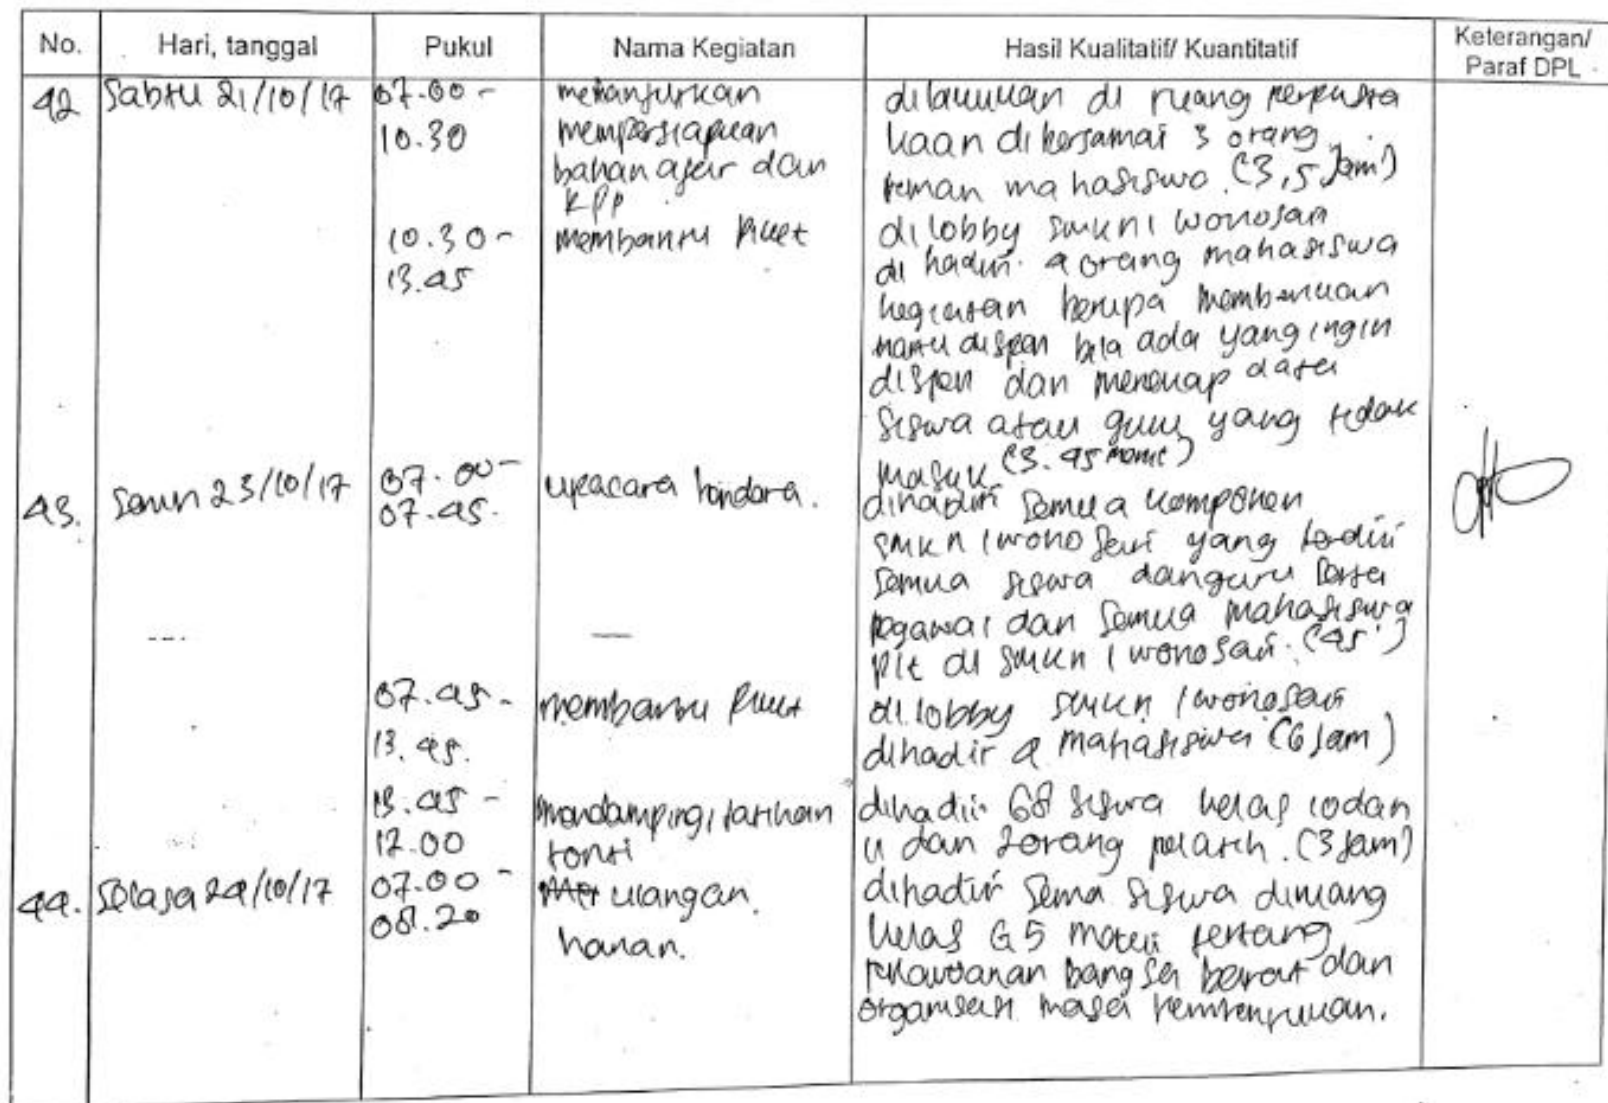 No. Hari, tanggal Pukul Nama Kegiatan Hasil Kualitatif/ Kuantitatif Keterangan/
Paraf DPL
42 Sabtu 21/10/17 07.00 - melanjutkan dilakukan di ruang perpusta
10.30 mempersiapkan kaan dibersamai 3 orang
bahan ajar dan teman mahasiswa. (3,5 Jam)
KPP
10.30 - membantu Piket di lobby smkn 1 wonosari
13.45 di hadiri 4 orang mahasiswa
kegiatan berupa memberikan
kartu dispen bila ada yang ingin
dispen dan merekap data
siswa atau guru yang tidak
masuk (3.45 menit)
43. Senin 23/10/17 07.00 - upacara bendera. dihadiri semua komponen
07.45. smkn 1 wonosari yang terdiri
semua siswa dan guru serta
pegawai dan semua mahasiswa
plt di smkn 1 wonosari. (45')
07.45 - membantu Piket di lobby smkn 1 wonosari
13.45. dihadir 4 mahasiswa (6 Jam)
13.45 - mendampingi latihan dihadiri 68 siswa kelas 10 dan
17.00 tonti 11 dan 2 orang pelatih. (3 Jam)
44. Selasa 24/10/17 07.00 - ulangan dihadiri Sema siswa diruang
08.20 harian. kelas G5 materi tentang
perlawanan bangsa barat dan
organisasi masa